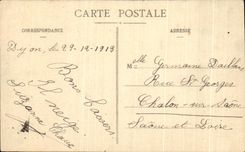 CARTE POSTALE
CORRESPONDANCE
ADRESSE
Dijon, le 29-12-1913
Bons baisers
Il neige
Suzanne
Mlle Germaine
Rue St Georges
Chalon-sur-Saône
Saône et Loire